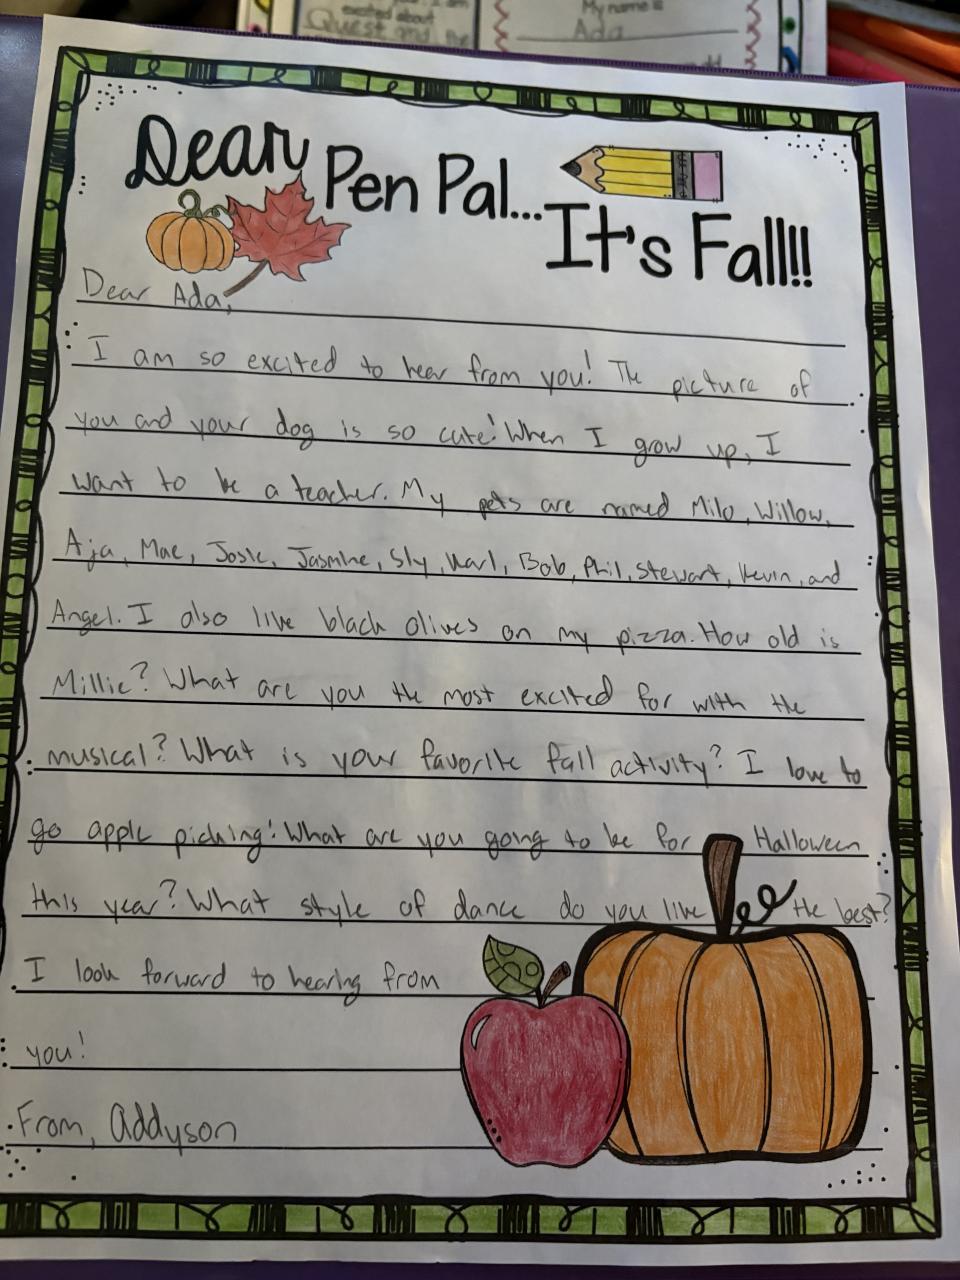 excited about
Quest and the
My name is
Ada
Dear Pen Pal... It's Fall!!
Dear Ada,
I am so excited to hear from you! The picture of
you and your dog is so cute! When I grow up, I
want to be a teacher. My pets are named Milo, Willow,
Aja, Mae, Josie, Jasmine, Sly, Karl, Bob, Phil, Stewart, Kevin, and
Angel. I also like black olives on my pizza. How old is
Millie? What are you the most excited for with the
musical? What is your favorite fall activity? I love to
go apple picking! What are you going to be for Halloween
this year? What style of dance do you like the best?
I look forward to hearing from
you!
From, Addyson